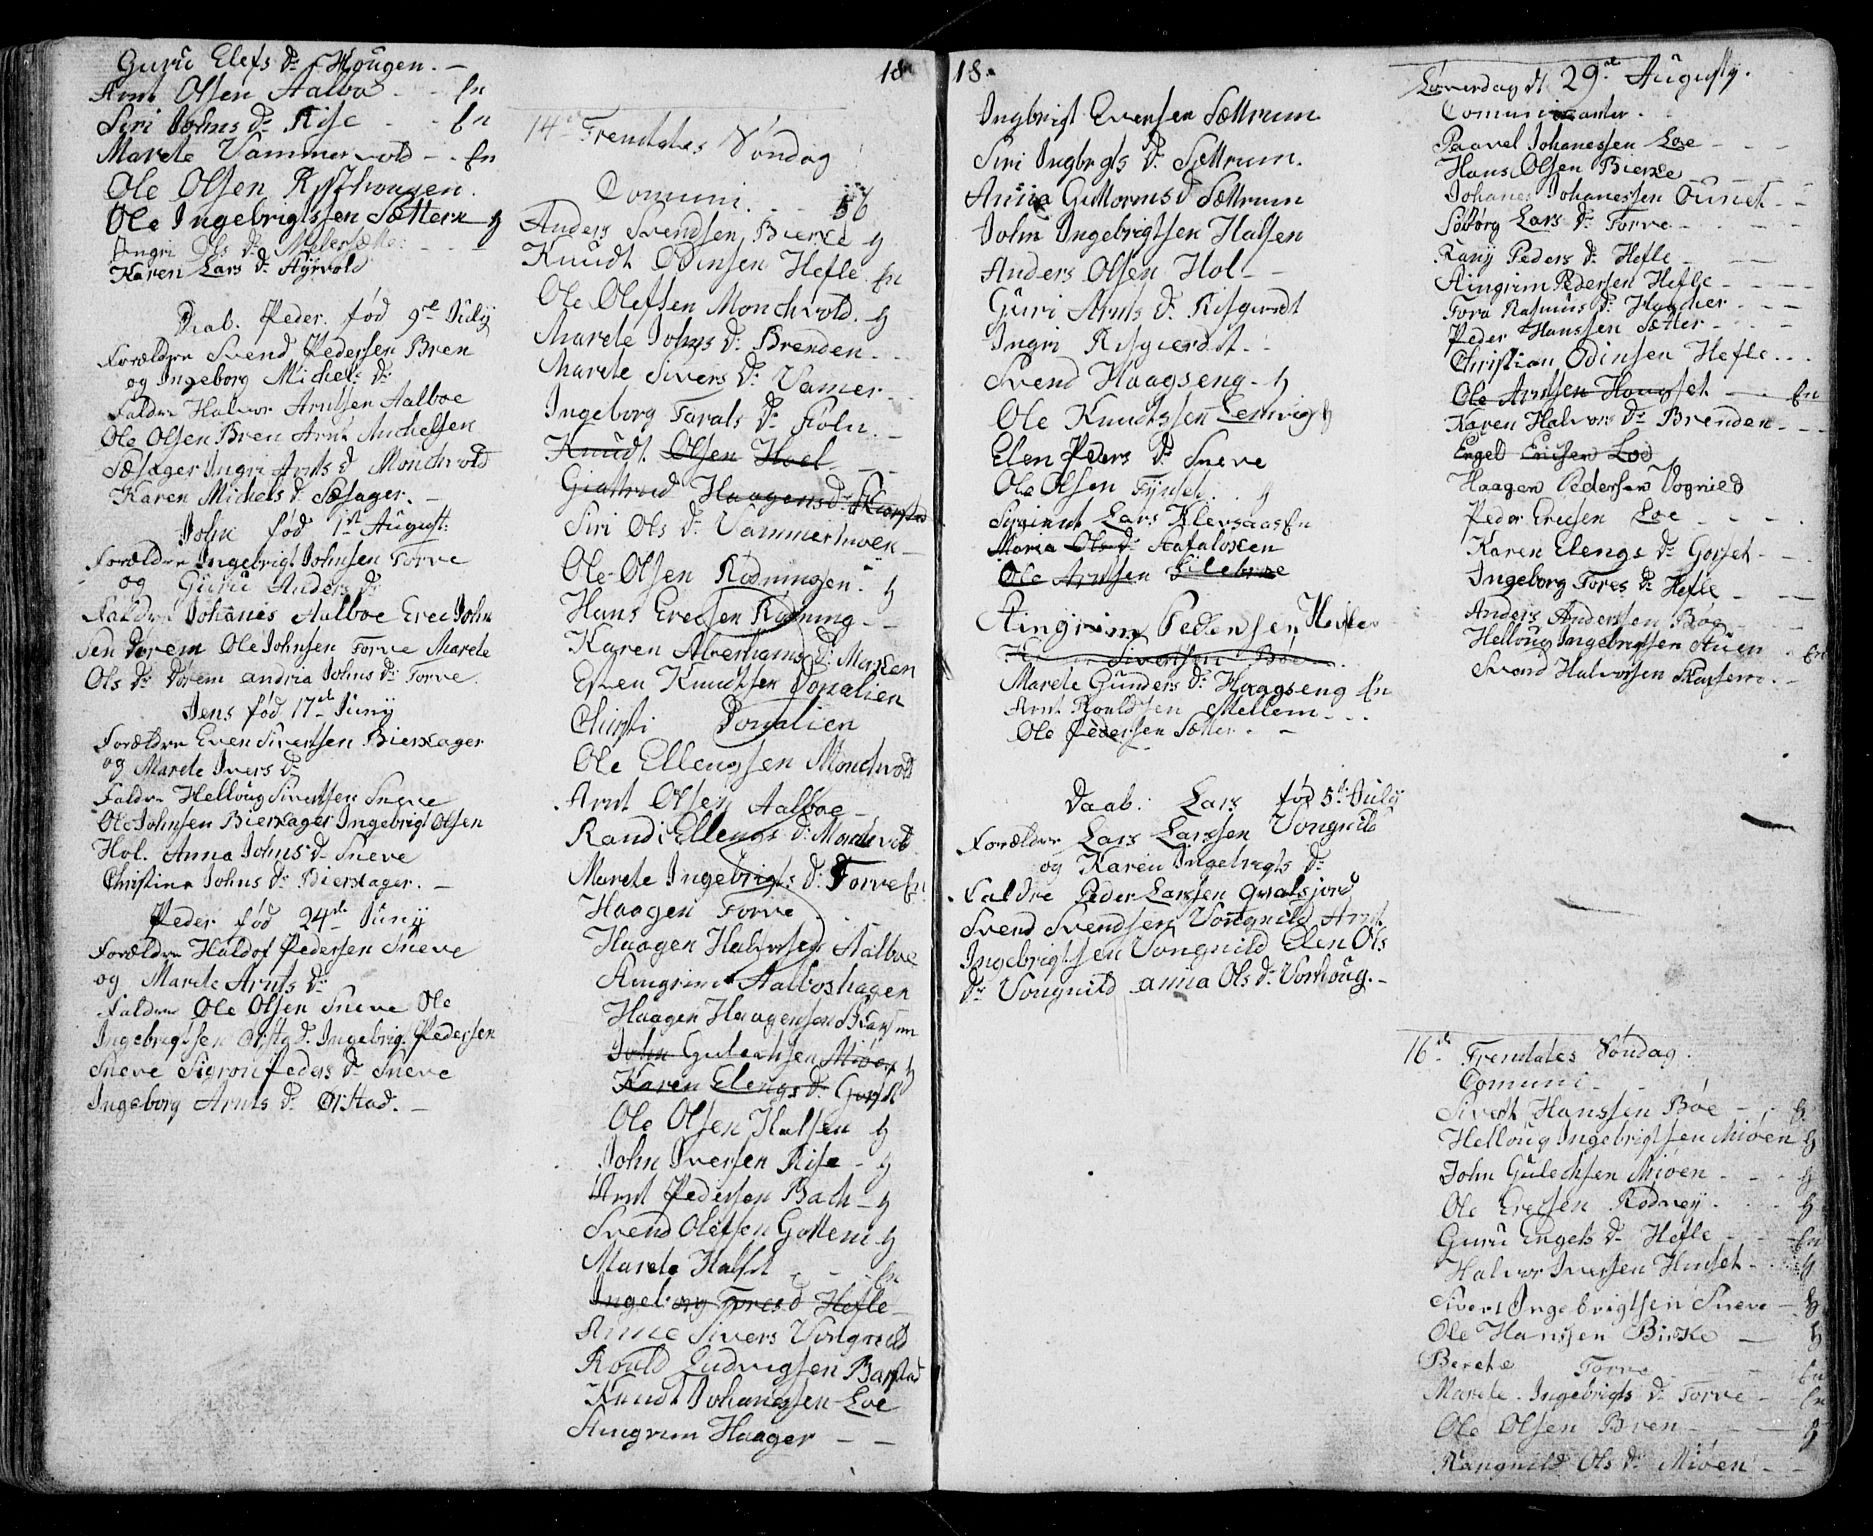 Guru Elefs d. Hougen. –
Arnt Olsen Aalbo - - En
Siri Johns d. Rise - - En
Marete Vammervold - . En
Ole Olsen Risthougen.
Ole Ingebrigtssen Sættern – H
Ingri Ols d.
Karen Lars d. Ayrvold
Daab. Peder. fød 9de July
Forældre Svend Pedersen Bren
og Ingeborg Michels d.
Faldre Halvor Arntsen Aalboe
Ole Olsen Bren Arnt Michelsen
Sæsager Ingri Arnts d. Monchvold
Karen Michels d. Sæsager. –
John fød 1st August:
Forældre Ingebrigt Johnsen Torve
og Guru Anders d.
Faldre Johanes Aalboe Erec John
sen Dørem Ole Johnsen Torve Marete
Ols d. Dørem andria Johns d. Torve.
Jens fød 17de Juny
Forældre Even Sivertsen Bierkager
og Marete Ivers d.
Faldre Helloug Sivertsen Sneve
Ole Johnsen Bierkager Ingebrigt Olsen
Hol. Anna Johns d. Sneve
Christina Johns d. Bierkager. –
Peder fød 24de Juny
Forældre Haldor Pedersen Sneve
og Marete Arnts d.
Faldre Ole Olsen Sneve Ole
Ingebrigtsen Ørstad. Ingebrig. Pedersen
Sneve Sigron Peders d. Sneve
Ingeborg Arnts d. Ørstad. –
18
14de Trenitates Søndag
Comuni. - - 56
Anders Svendsen Bierke H
Knudt Odinsen Hefle. En
Ole Olefsen Monchvold. H
Marete Johns d. Brenden. - -
Marete Sivers d. Vamer - -
Ingeborg Tarals d. Floln. –
Knudt Olsen Hoel - - -
Giertrud Haagens d. Skorstad
Siri Ols d. Vammerhuen –
Ole Olsen Rødningen. H
Hans Erecsen Rødning - -
Karen Abrehams d. Marken
Even Knudtsen Donalien
Christi Donalien
Ole Ellengsen Monchvold
Arnt Olsen Aalboe –
Randi Ellengs d. Monchvold
Marete Ingebrigts d. Torve En
Haagen Torve
Haagen Halvorsen Aalboe
Aingrim Aalboshagen
Haagen Haagensen Skarsem
John Gulechsen Miøen H
Karen Elengs d. Gorset
Ole Olsen Halsen H
John Iversen Rise - H
Arnt Pedersen Bach – H
Svend Olefsen Gottem H
Marete Halset - - En
Ingeborg Tores d. Hefle –
Anne Sivers Vongnild
Rould Ludvigsen Barstad
Knudt Johanessen Loe
Aingrim Haager – –
18.
Ingbrigt Evensen Sættrum
Siri Ingbrgts d. Sættrum.
Anna Guttorms d Sættrum
John Ingebrigtsen Halsen
Anders Olsen Hol – –
Guri Arnts d. Risgierdt
Ingri Risgierdt. -
Svend Haagseng - H
Ole Knudtssen Lennvig H
Elen Peders d. Sneve
Ole Olsen Fynset. . H
Sersient Lars Kleveaas En
Maria Ols d. Aafaloxen
Ole Arntsen Lilebroe
Aingrim Pedersen Hefle
Sivertsen Bøe
Marete Gunders d. Haagseng En
Arnt Rouldsen Mellem - - -
Ole Pedersen Sætter. –
Daab. Lars fød 5de July
Forældre Lars Larssen Vongnild
og Karen Ingebrigts d.
Faldre Peder Larssen Gravlsjord
Svend Svendsen Vongnild Arnt
Ingebrigtsen Vongnild Elen Ols
d. Vongnild anna Ols d. Vorhoug. –
Løverdag d 29de Augusty.
Comunicanter.
Paavel Johanessen Loe - - -
Hans Olsen Bierke - - -
Johanes Johanessen Ounet - -
Søbørg Lars d. Torve - - -
Rany Peders d. Hefle - - -
Aingrim Pedersen Hefle - - -
Tora Rasmus d. Haacher - - -
Peder Hanssen Sætter - - -
Christian Odinsen Hefle . . .
Ole Arntsen Hougset - - En
Karen Halvors d. Brenden - - -
Engel Ericsen Loe
Haagen Pedersen Vognild
Peder Ericsen Loe - - - .
Karen Elengs d. Gorset - -
Ingeborg Tores d. Hefle - - -
Anders Andersen Bøe - - -
Helloug Ingebrigtsen Auen - En
Svend Halvorsen Skarsem. –
16de Trenitates Søndag.
Comuni. -
Sivert Hanssen Bøe - . - H
Helloug Ingebrigtsen Miøen H
John Gulechsen Miøen - - - H
Ole Erecsen Rødvey - - - H
Guru Engels d. Hefle - - - En
Halvor Iversen Hinset - - H
Sivert Ingebrigtsen Sneve - H
Ole Hanssen Birke – H
Berete Torve - En
Marete Ingebrigts d. Torve - En
Ole Olsen Bren - - H
Rangnild Ols d. Miøen - -